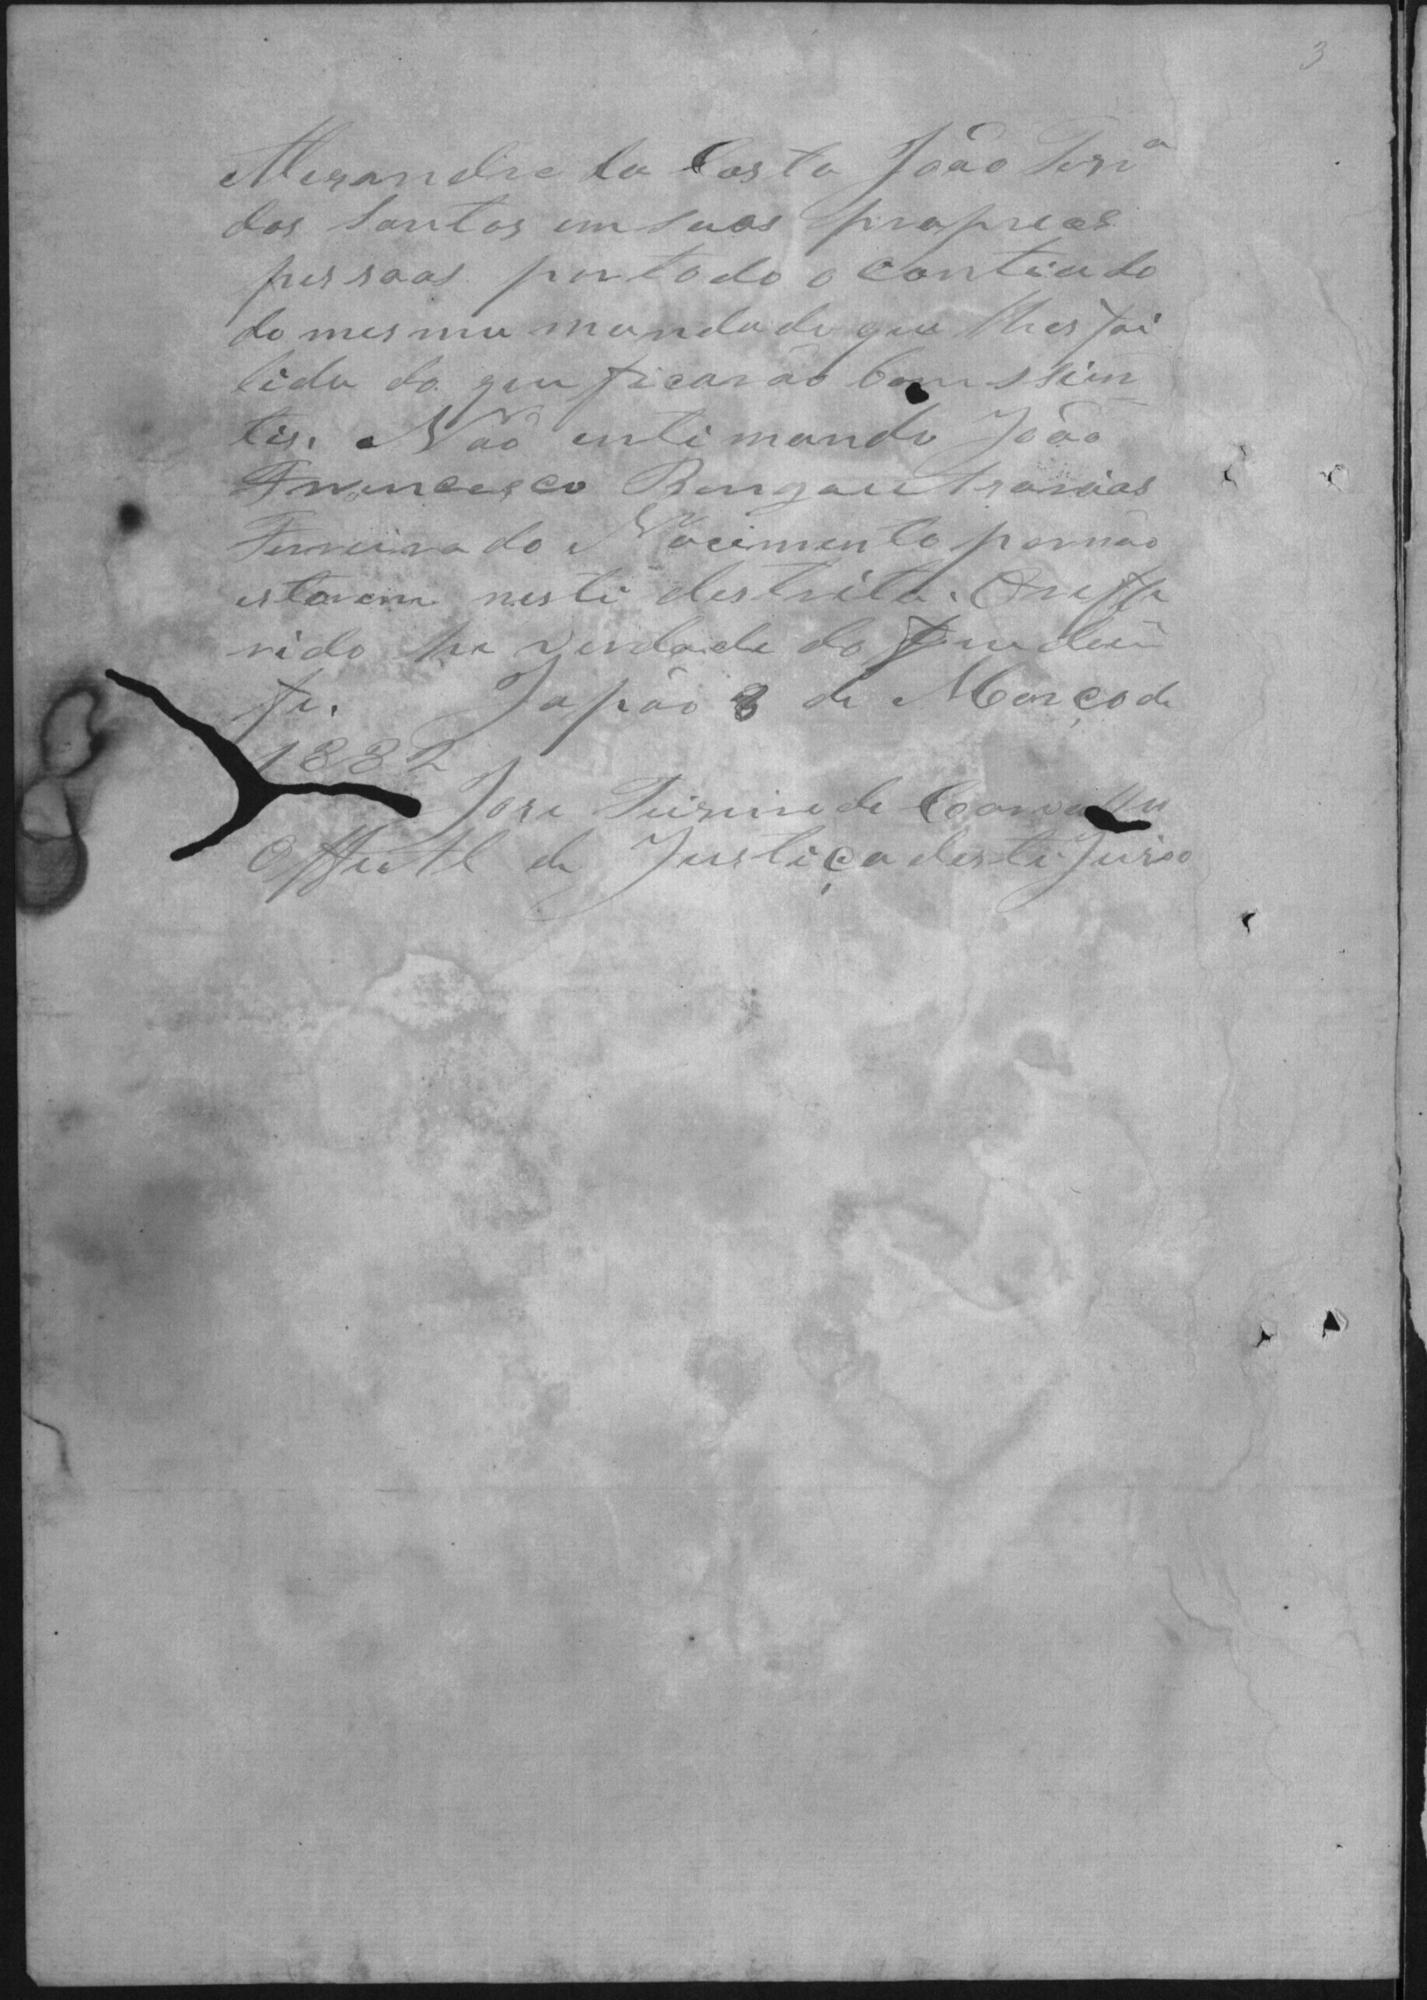 3
Alexandre da Costa João Ferr.ª
dos Santos em suas propreas
pessoas por todo o contiudo
do mesmo mandado que lhes foi
lido do que ficarão bem ssien
tes. Não entimando João
Francesco e
Ferreira do Nacimento por não
estarem neste destrito. O reffe
rido he verdade do que dou
fe. Japão 3 de Março de
1882
Jose de Carvalho
Official de Justiça deste Juiso